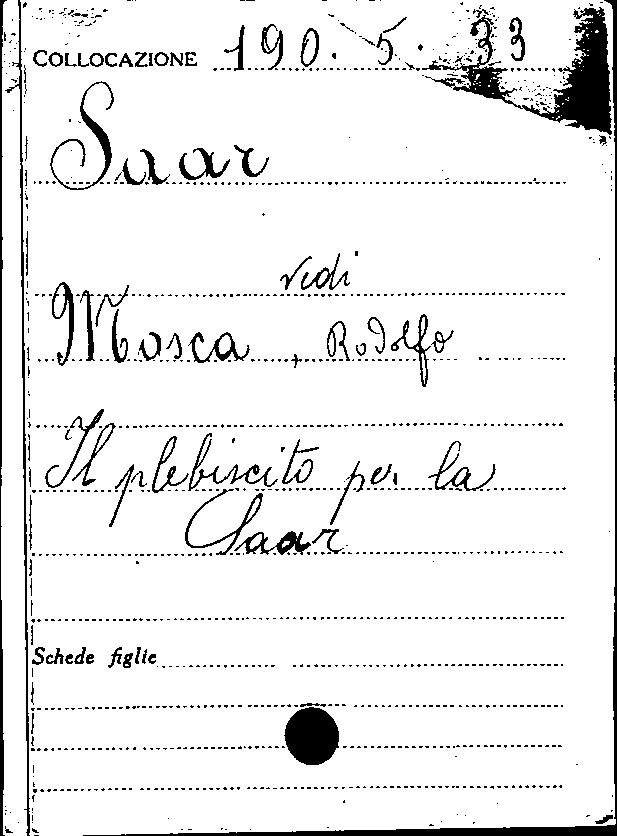 COLLOCAZIONE 190. 5. 33
Saar
vedi
Mosca, Rodolfo
Il plebiscito per la
Saar
Schede figlie